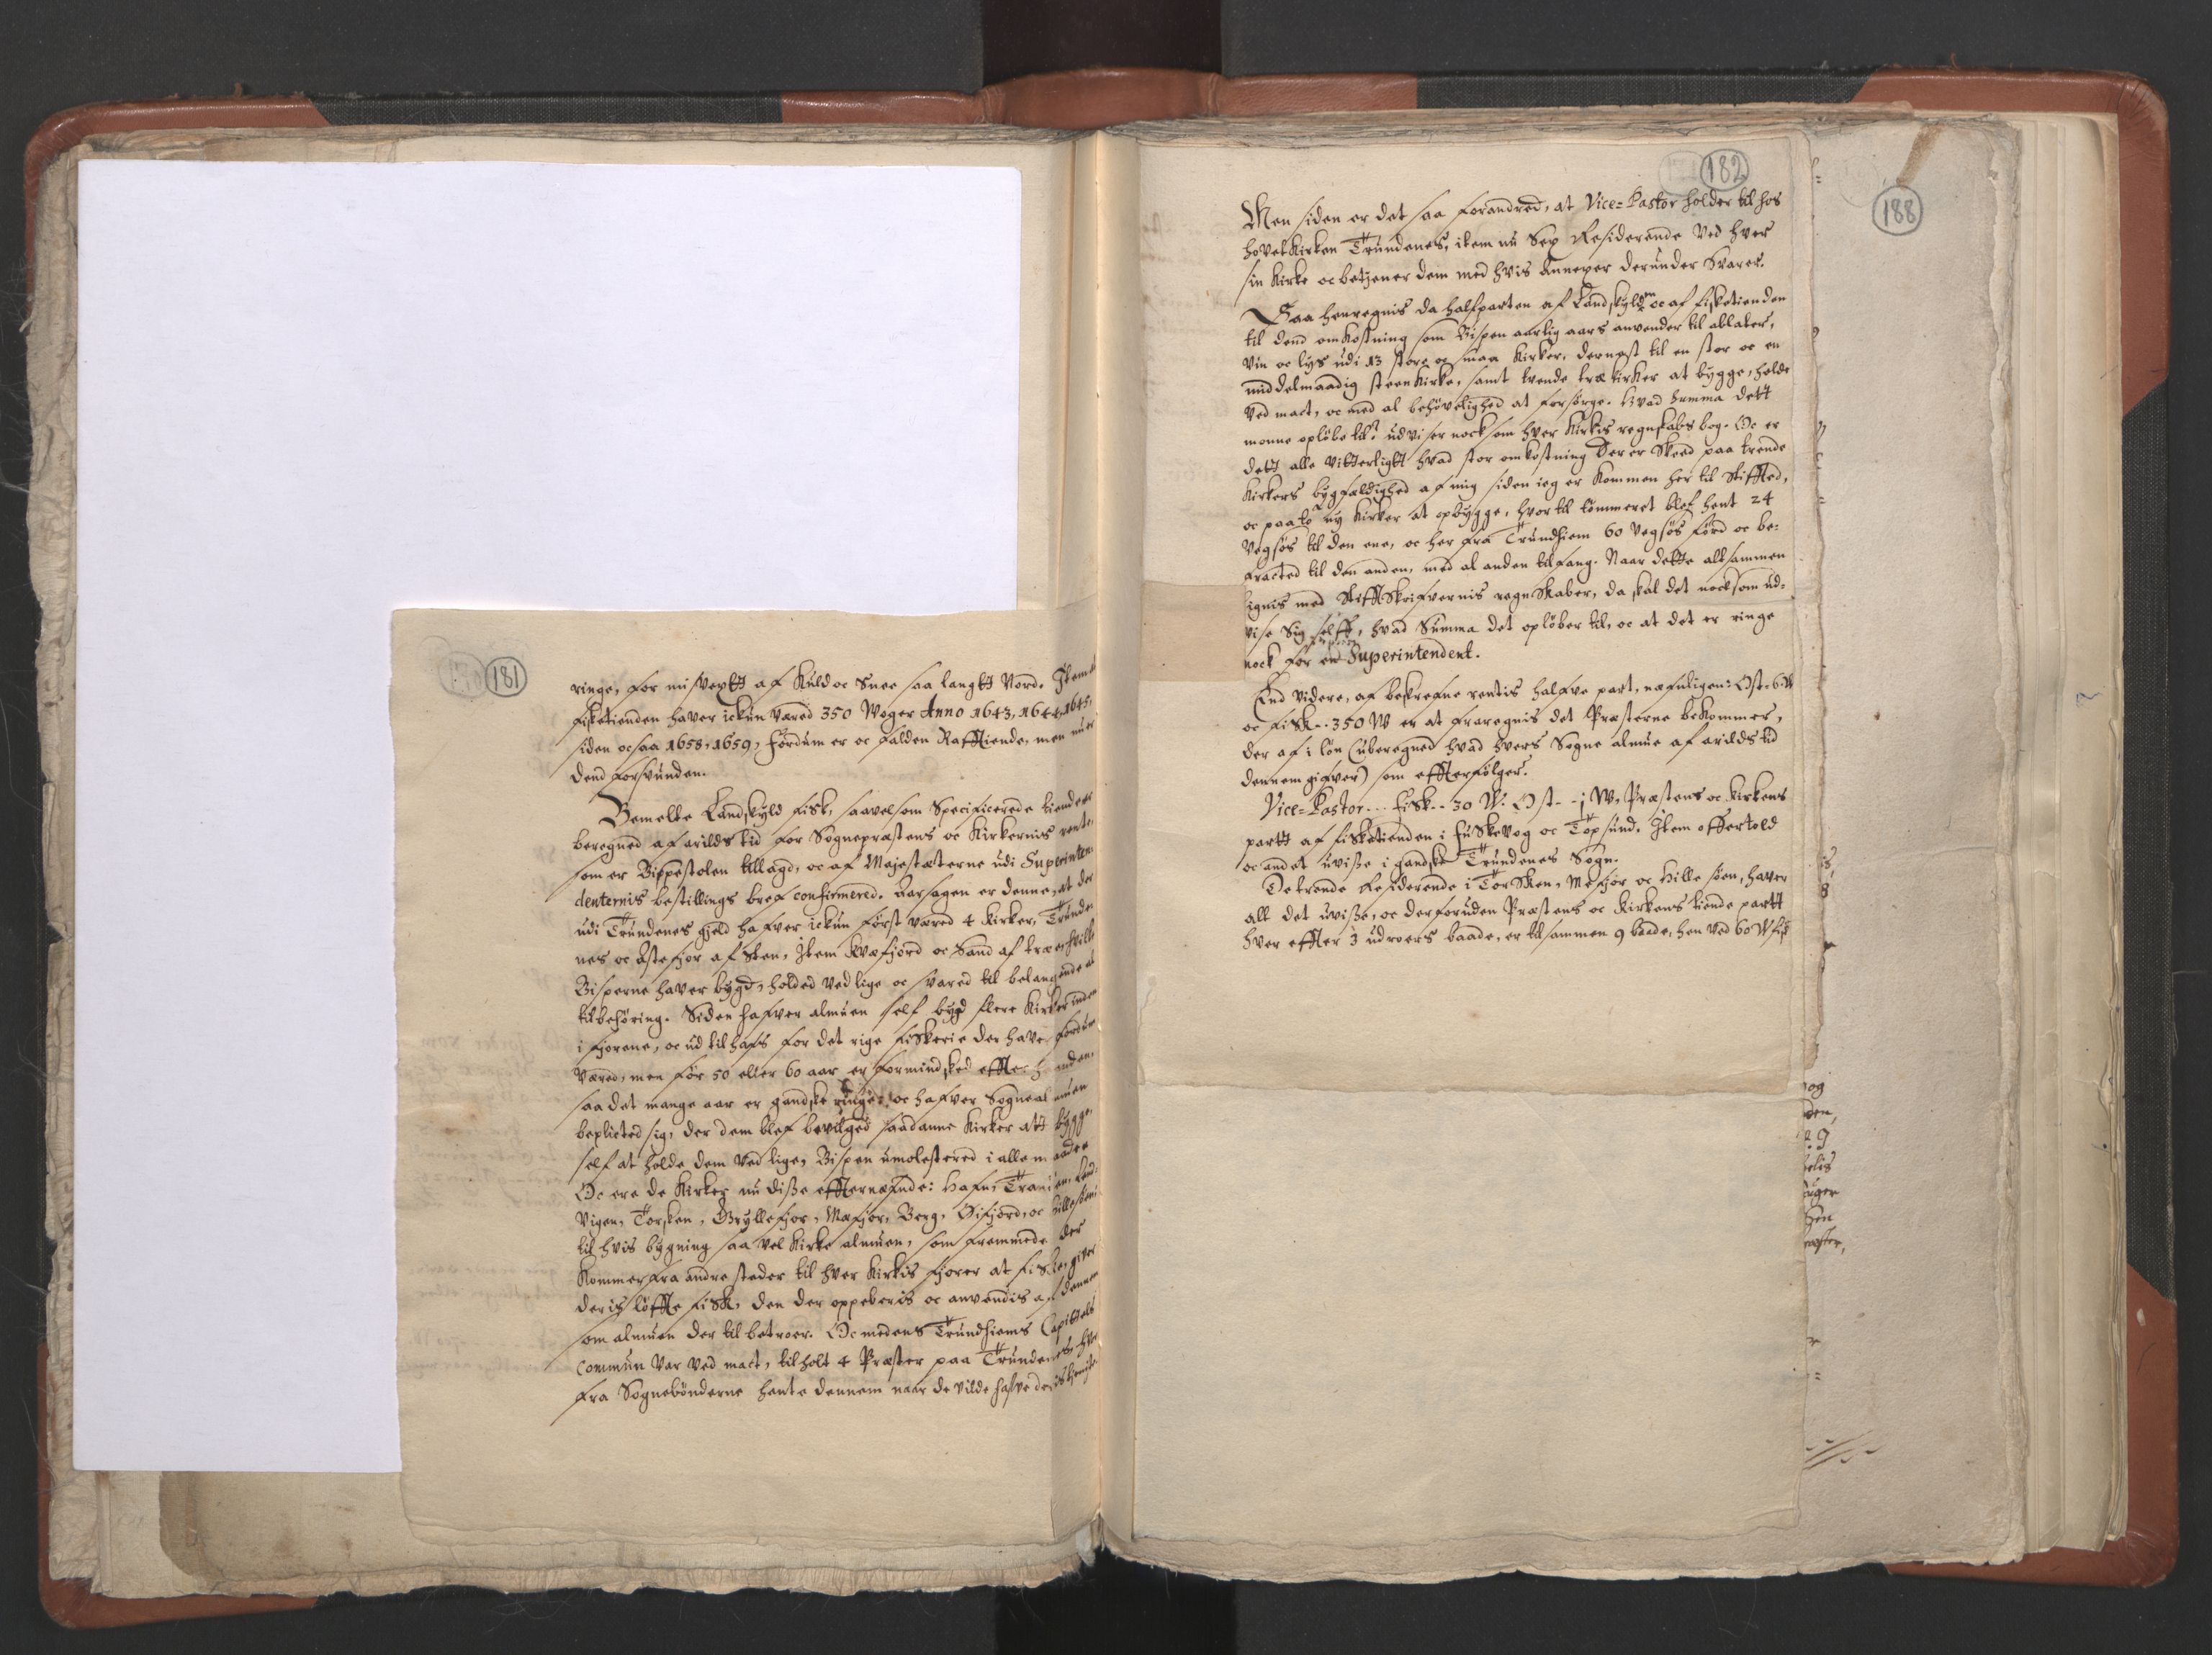 181
ringe, for misvextt af Kuld oc Snee saa langtt Nord. Item
fisketienden haver ickun været 350 Woger Anno 1643, 1644, 1645,
siden ocsaa 1658, 1659, fordum er oc falden Rafftiende, men nu er
dend forsvunden.
Bemelte Landskyld fisk, saavelsom Specificerede tiender
beregned af arilds tid for Sognepræstens oc Kirkernis rente,
som er Bispestolen tillagd, oc af Majestæterne udi Superinten-
denternis bestillings bref confirmered. Aarsagen er denne, at der
udi Trundenes gield hafver ickun först været 4 Kirker, Trunde-
nes oc Astefjor af Sten, Item Kvæfjord oc Sand af træ, hvilke
Bisperne haver bygd, holded ved lige oc svared til belangende al
tilbehöring. Siden hafver almuen self bygd flere Kirker inden
i fjorene, oc ud til hafs for det rige fiskerie der haver fordum
været, men för 50 eller 60 aar er formindsked effter haanden,
saa det mange aar er gandske ringe: oc hafver Sognealmuen
beplicted sig, der dem blef bevilged saadanne Kirker att bygge,
self at holde dem ved lige, Bispen umolestered i alle maader
Oc ere de Kirker nu disse effternæfnde: Hafn, Tranöen, Land-
vigen, Torsken, Gryllefjor, Mefjor, Berg, Öifjord, oc Hillesöen:
til hvis bygning saa vel Kirke almuen, som fremmede der
Kommer fra andre steder til hver Kirkis fjorer at fiske, giver
deris löffte fisk, den der oppeberis oc anvendis af dennem
som almuen der til betroer. Oc medens Trundhiems Capittels
Commun var ved mact, tilholt 4 Præster paa Trundenes, hvor
fra Sognebönderne hente dennem naar de vilde hafve deris tieniste
182
Men siden er det saa forandred, at Vice-Pastor holder til hos
hovetkirken Trundenes, item nu Sex Residerende ved hver
sin Kirke oc betjener dem med hvis Annexer derunder Svarer.
Saa henregnis da halfparten af Landskylden oc af fisketienden
til dend omkostning som Bispen aarlig aars anvender til ablater,
vin oc lys udi 13 store oc smaa Kirker, dernæst til en stor oc en
middelmaadig steenkirke, samt trende trækirker at bygge, holde
ved mact, oc med al behövelighed at forsörge. Hvad Summa dett
monne oplöbe til? udviser nocksom hver Kirkis regnskabs bog. Oc er
dett alle vitterligtt hvad stor omkostning der er Skeed paa trende
Kirkers bygfældighed af mig siden ieg er kommen her til Stifftet,
oc paa to ny Kirker at opbygge, hvortil tömmeret blef hent 24
vegsös til den ene, oc her fra Trundhiem 60 vegsös förd oc be-
fracted til den anden, med al anden tilfang. Naar dette altsammen
lignis med Stifftskrifvernis regnskaber, da skal det nocksom ud-
vise sig selff, hvad Summa det oplöber til, oc at det er ringe
nock for en Superintendent.
End videre, af beskrefne rentis halfve part, næfnligen: Ost.. 6 W
oc fisk.. 350 W er at fraregnis det Præsterne bekommer,
der af i lön (uberegned hvad hvers Sogne almue af arilds tid
dennem gifver) som effterfölger.
Vice-Pastor... fisk.. 30 W: Ost.. j W, Præstens oc Kirkens
partt af fisketienden i fuskevog oc Topsund, Item offertold
oc andet uvisse i gandske Trundenes Sogn.
De trende Residerende i Torsken, Mefjor oc Hillesöen, haver
all det uvisse, oc derforuden Præstens oc Kirkens tiende partt
hver effter 3 udroers baade, er tilsammen 9 baade, hen ved 60 W fisk
188